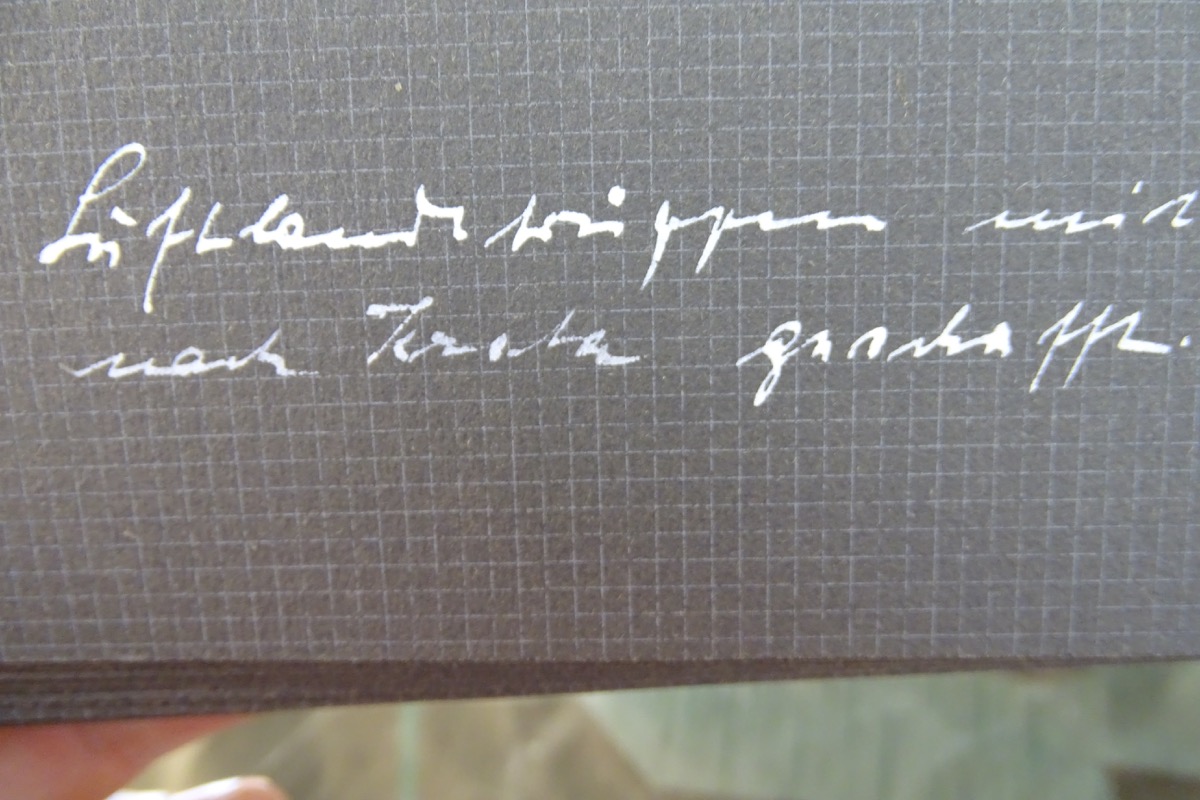 Luftlandetruppen mit
nach Kreta geschafft.